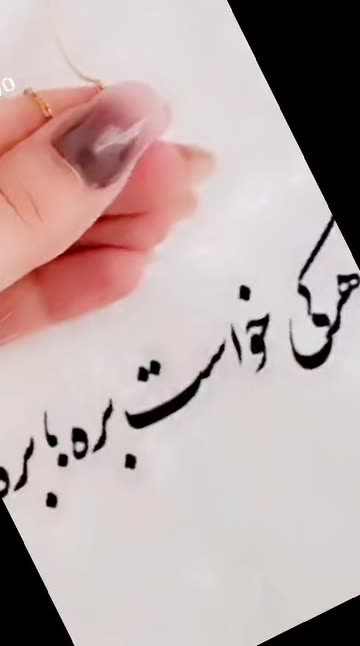 هرکی خواست بره با بره